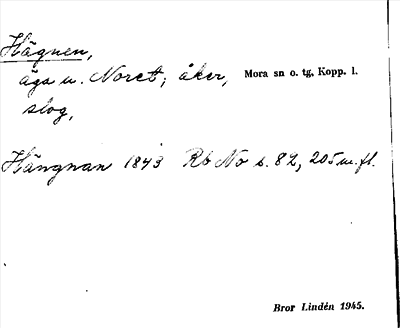 Hägnen,
äga u. Noret; åker, Mora sn o. tg, Kopp. l.
slog,
Hängnan 1843 Rb No s. 82, 205 m. fl.
Bror Lindén 1945.